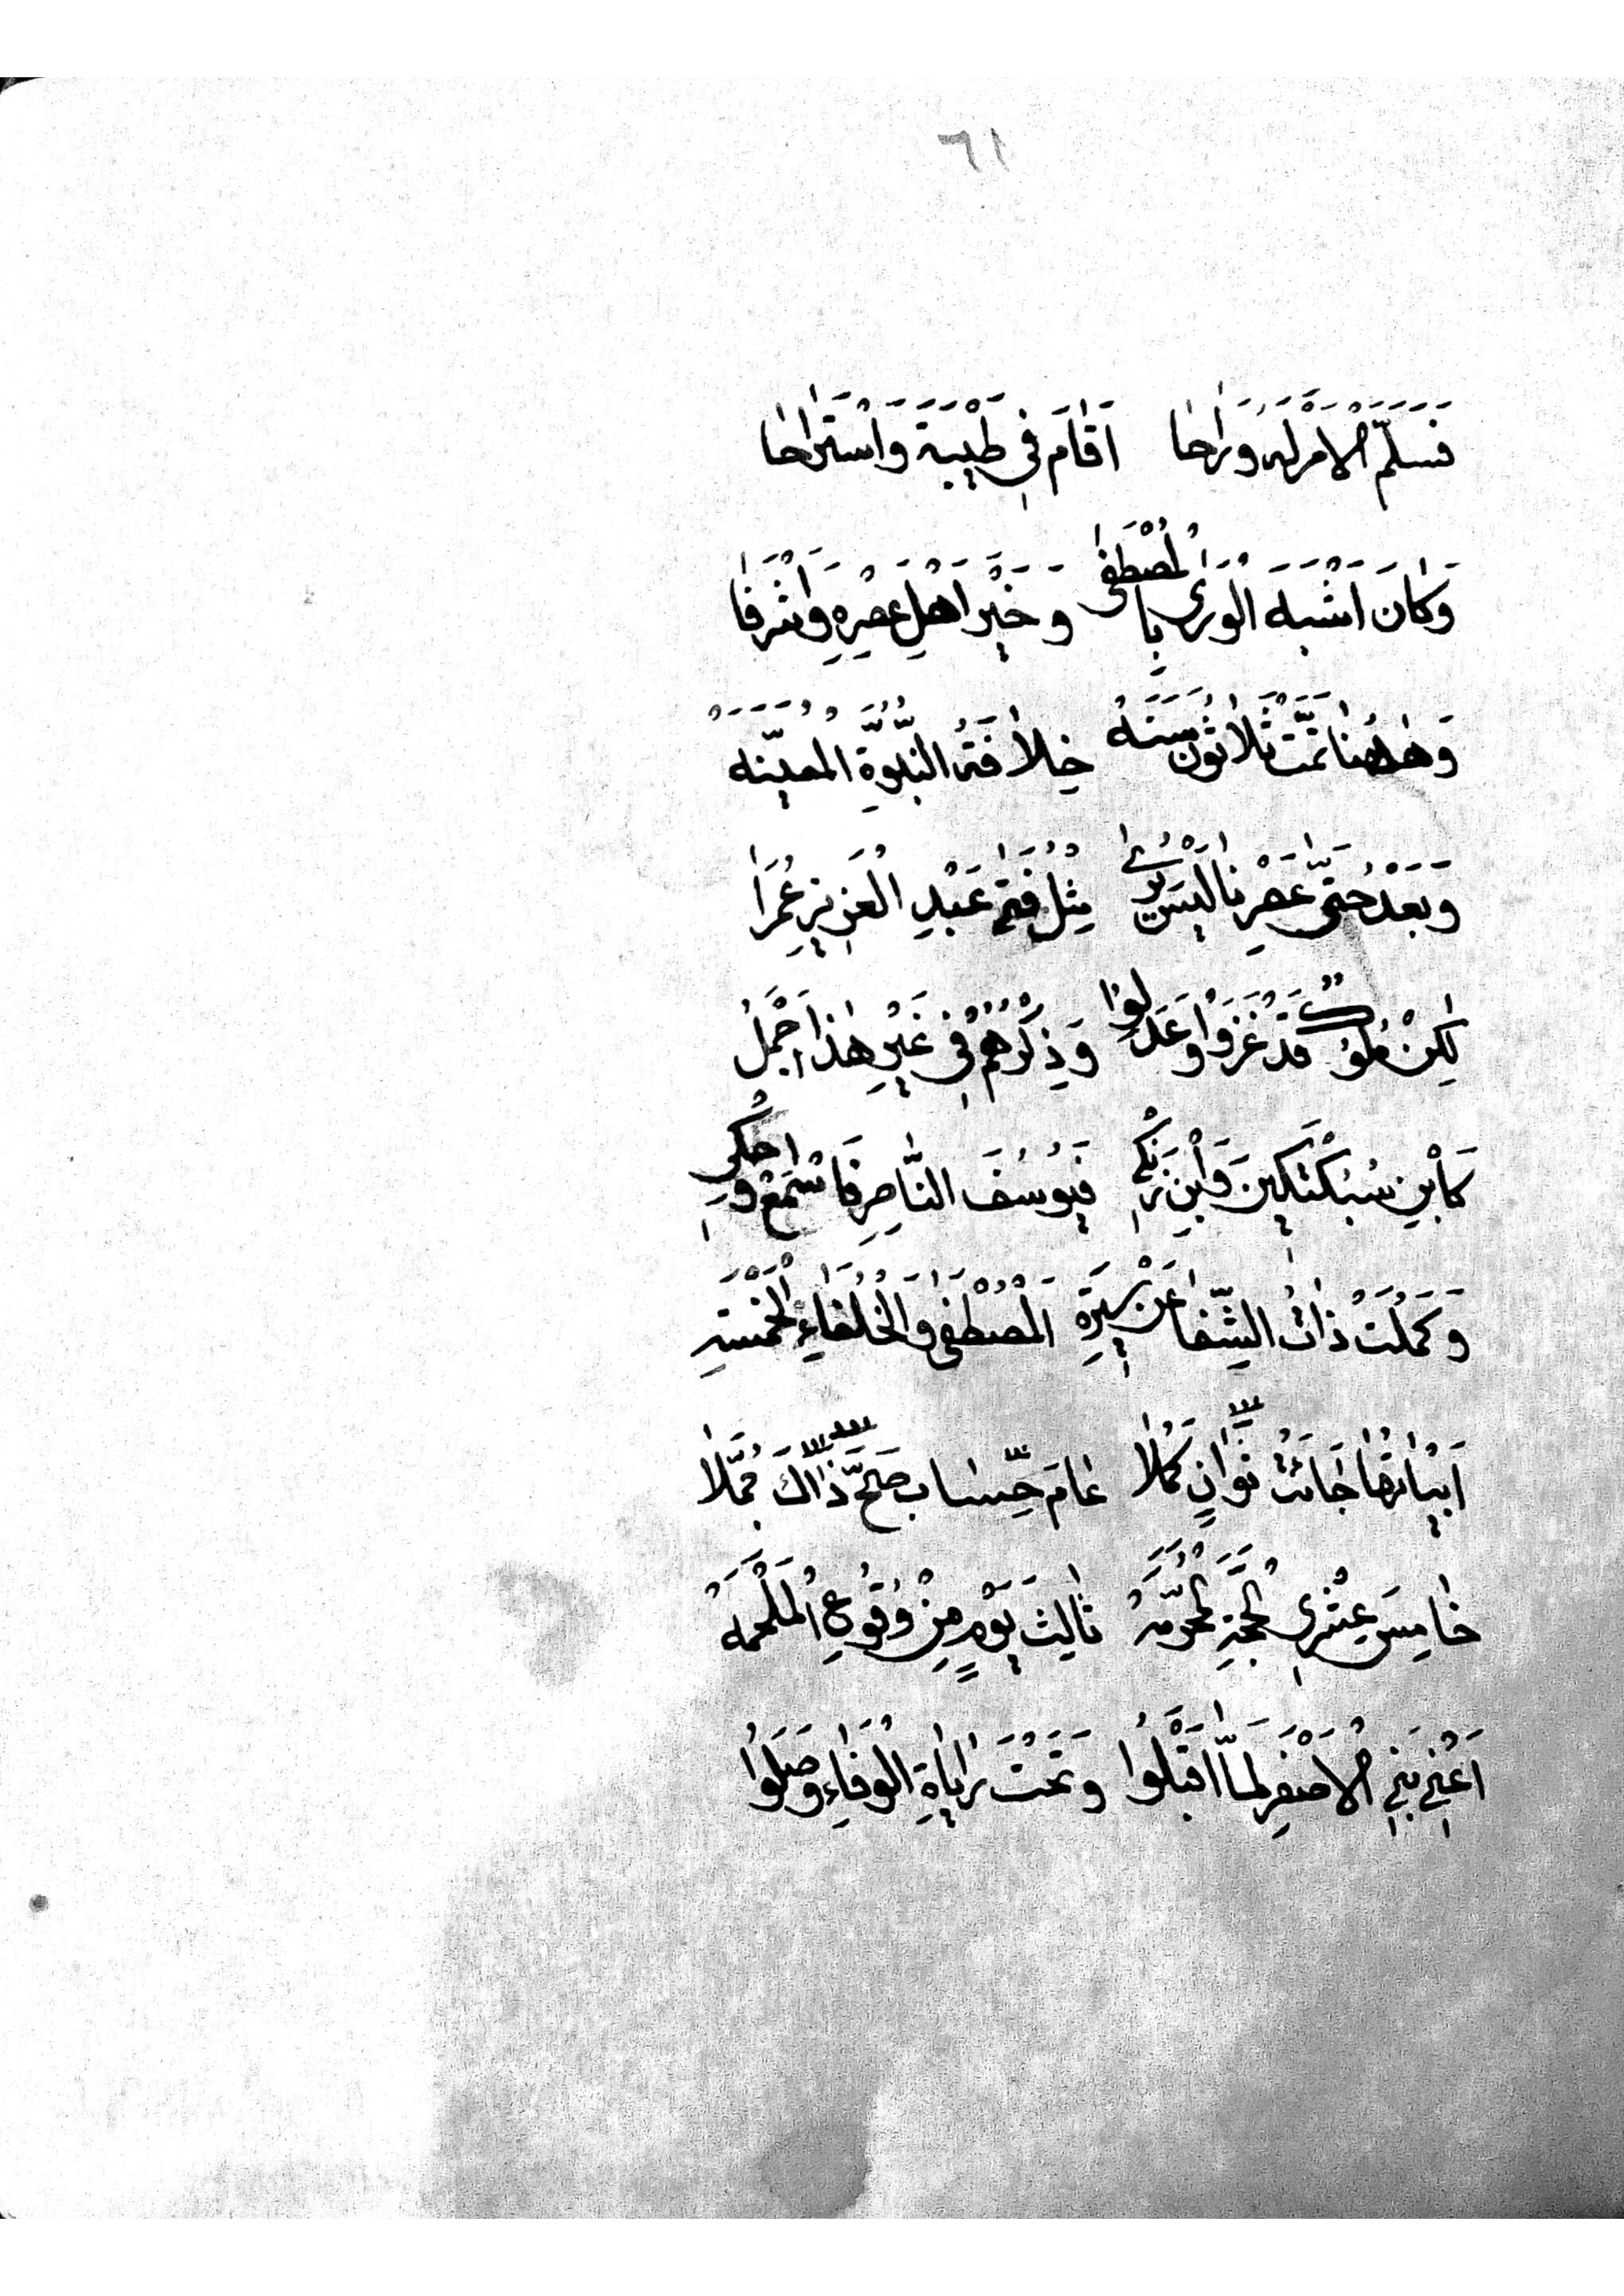 ٦١
فَسَلَّمَ الْاَمْرَ لَهُ وَرَاحَا اَقَامَ فِي طَيْبَةَ وَاسْتَرَاحَا
وَكَانَ اَشْبَهَ الْوَرٰى بِالْمُصْطَفٰى وَخَيْرَ اَهْلِ عَصْرِهِ وَاَشْرَفَا
وَهٰهُنَا تَمَّتْ ثَلَاثُونَ سَنَهْ خِلَافَةُ النُّبُوَّةِ الْمُعَيَّنَهْ
وَبَعْدُ حَتّٰى عَصْرِنَا لَيْسَ يُرٰى مِثْلُ فَتٰى عَبْدِ الْعَزِيزِ عُمَرَا
لٰكِنْ مُلُوكٌ قَدْ غَزَوْا وَعَدَلُوا وَذِكْرُهُمْ فِي غَيْرِ هٰذَا اَجْمَلُ
كَابْنِ سُبُكْتَكِينَ وَابْنِ زَنْكِي فَيُوسُفَ النَّاصِرِ فَاسْمَعْ وَاحْكِي
وَكَمُلَتْ ذَاتُ الشِّفَا عَنْ سِيرَةِ الْمُصْطَفٰى وَالْخُلَفَاءِ الْخَمْسَةِ
اَبْيَاتُهَا جَائَتْ ثَوَانٍ كُمَّلَا عَامَ حِسَاب صَحَّ ذَاكَ جُمَّلَا
خَامِسَ عِشْرِي الْحِجَّةِ الْمُحَرَّمَهْ ثَالِثَ يَوْمٍ مِنْ وُقُوعِ الْمَلْحَمَهْ
اَعْنِي بَنِي الْاَصْفَرِ لَمَّا اَقْبَلُوا وَتَحْتَ رَايَاةِ الْوَفَاءِ وَصَلُوا